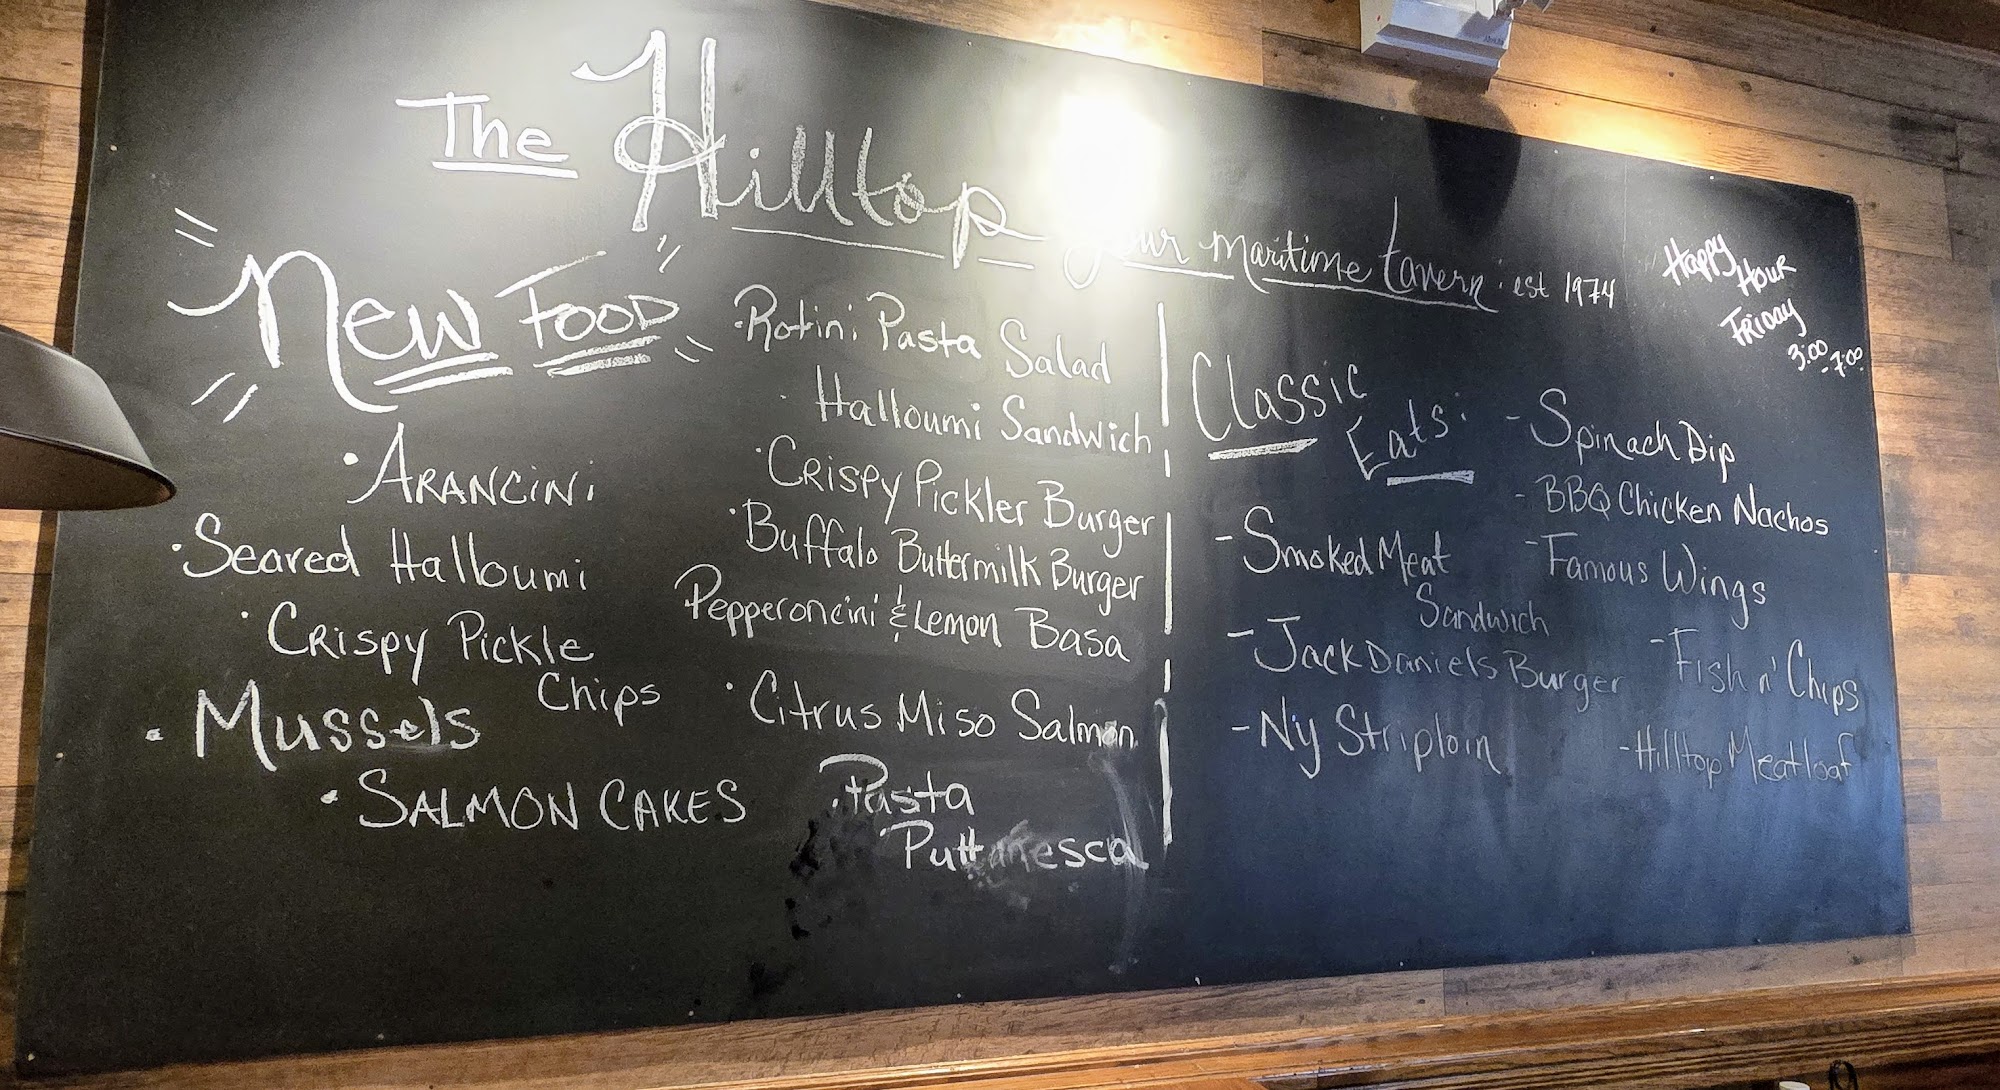 The Hilltop
your maritime tavern · est 1974
Happy
Hour
Friday
3:00-7:00
New Food
· Arancini
· Seared Halloumi
· Crispy Pickle
Chips
· Mussels
· Salmon Cakes
· Rotini Pasta Salad
· Halloumi Sandwich
· Crispy Pickler Burger
· Buffalo Buttermilk Burger
Pepperoncini & Lemon Basa
· Citrus Miso Salmon
· Pasta
Puttanesca
Classic
Eats:
- Smoked Meat
Sandwich
- Jack Daniels Burger
- Ny Striploin
- Spinach Dip
- BBQ Chicken Nachos
- Famous Wings
- Fish n' Chips
- Hilltop Meatloaf